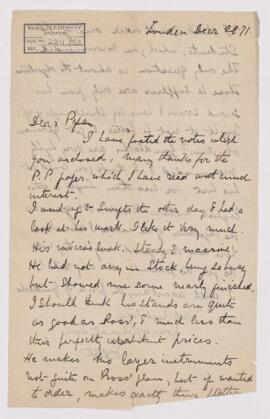 London Decr 28 71
Dear Piper
I have posted the notes which
you inclosed, many thanks for the
P.P. paper, which I have read with much
interest.
I went up to Swifts the other day & had a
look at his work. I like it very much.
His micros look steady & massive.
He had not any in Stock, being so busy
but showed me some nearly finished.
I should think his stands are quite
as good as Ross', & much less than
their perfectly exorbitant prices.
He makes his larger instruments
not quite on Ross' plan, but if wanted
to order, makes exactly their pattern